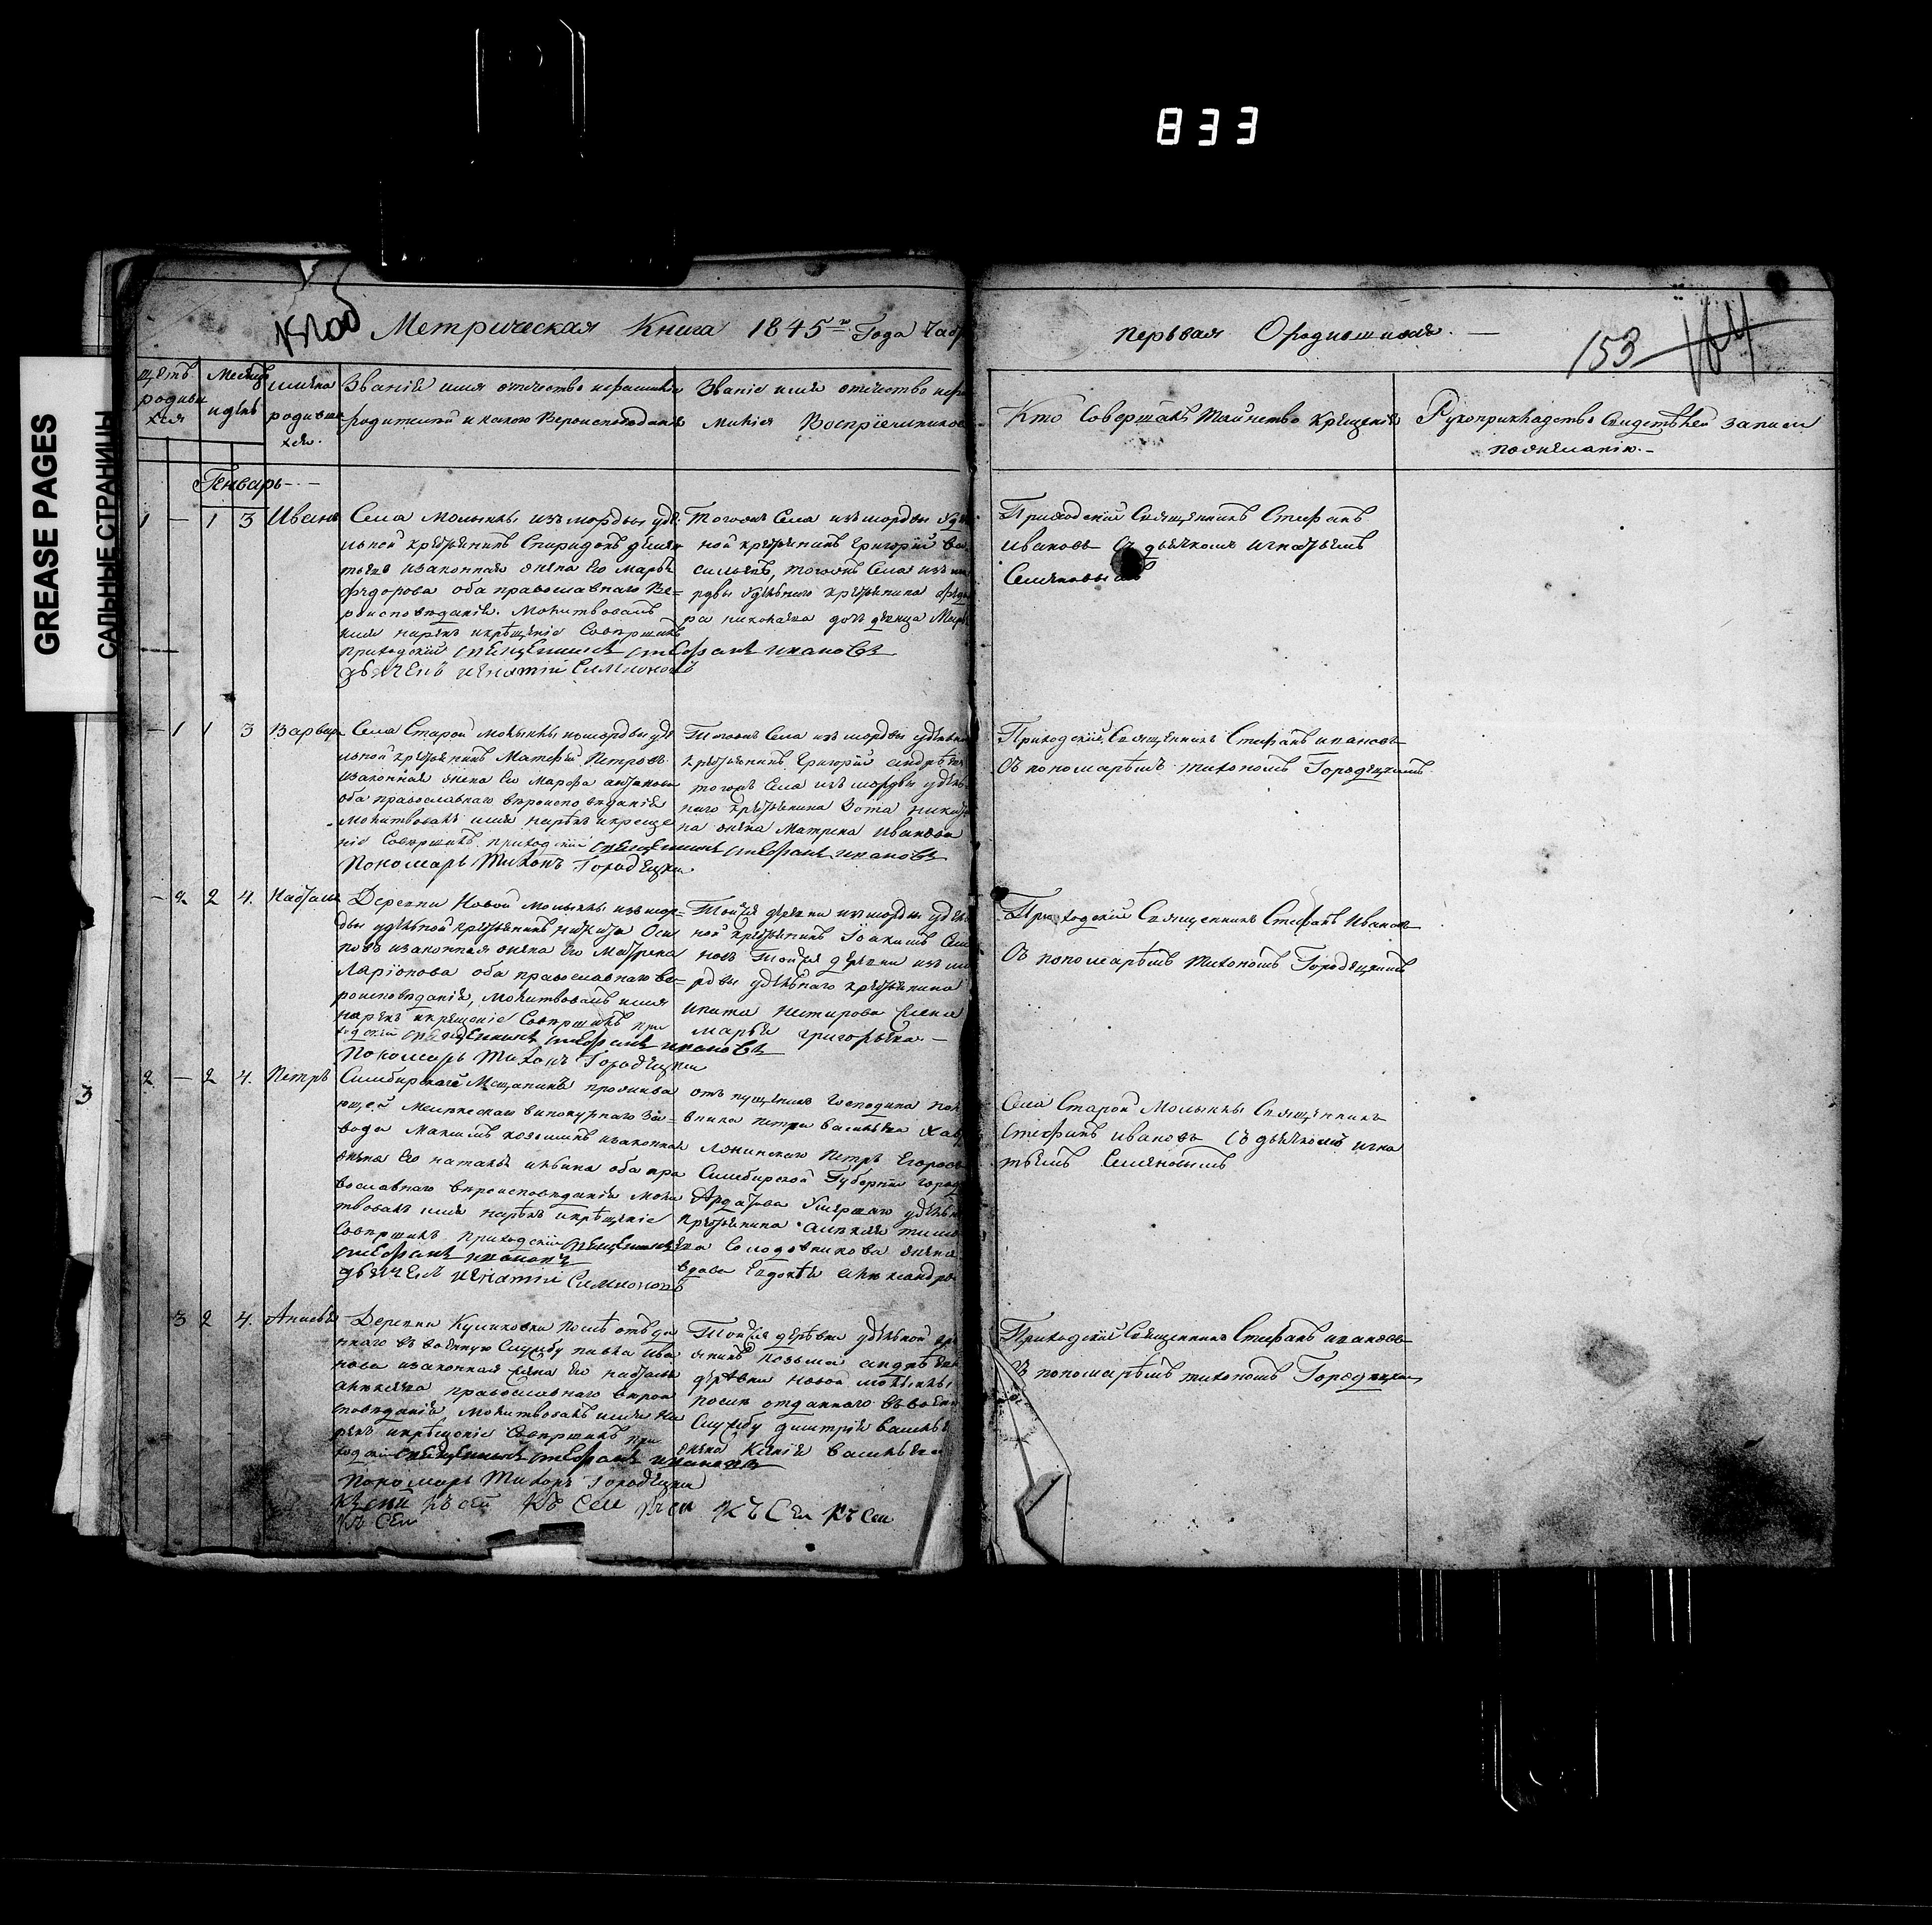 833
GREASE PAGES
САЛЬНЫЕ СТРАНИЦЫ
Метрическая Книга 1845го Года Часть
первая О родившихся.
153 164
Щетъ родившихся
Месяцъ и день
имяна родившихся.
Званiе имя отчество и фамилия
родителей и какого Вероисповедания
Званiе имя отчество и фа
милiя Воспрiемников
Кто Совершалъ Таинство Крещения
Рукоприкладство Свидетелей записи
по желанiю.
Генварь
1 — 1 3 Иванъ
Села Молыклы изъ мордвы уде
льной крестьянинъ Спиридонъ
и законная жена его Марья
Федорова оба православнаго Ве=
роисповѣданiя. Молитвовалъ
имя нарекъ и крещенiе Совершилъ
приходский священникъ Стефанъ Ивановъ
дьячекъ игнатiй Симионовъ
Тогожъ Села изъ мордвы удѣ
ной крестьянинъ Григорiй Ва
сильевъ, тогожъ Села изъ мо
рдвы удѣльнаго крестьянина Федо
ра николаева дочь девица Марья
Приходскiй Священникъ Стефанъ
Ивановъ Съ дьячкомъ игнатьемъ
Семеновымъ
— 1 1 3 Варвара
Села Старой Молыклы из мордвы уде
льной крестьянинъ Матфей Петровъ
и законная жена его Марфа
оба православнаго вероисповѣданiя
Молитвовалъ имя нарекъ и креще
нiе Совершилъ приходскiй священникъ Стефанъ Ивановъ
Пономарь Тихонъ Городецкiй
Тогожъ Села изъ мордвы удельной
крестьянинъ Григорiй андрѣевъ
тогожъ Села изъ мордвы удель
наго крестьянина Зота никити
на жена Матрена Иванова
Приходскiй Священникъ Стефанъ ивановъ
Съ пономарѣмъ тихономъ Городецкимъ
— 2 2 4. Наталья
Деревни Новой молыклы изъ мор=
двы удельной крестьянинъ никита Оси
повъ и законная жена его Матрена
Ларiонова оба православнаго Ве=
роисповѣданiя, Молитвовалъ имя
нарекъ и крещенiе Совершилъ при
ходскiй священникъ Стефанъ Ивановъ
Пономарь Тихонъ Городецкiй
Тойже деревни из мордвы удель
ной крестьянинъ Iоакимъ Семе
новъ Тойже деревни изъ мо
рдвы удельнаго крестьянина
жена
марья григорьева —
Приходскiй Священникъ Стефанъ Ивановъ
Съ пономарѣмъ тихономъ Городецкимъ
2 — 2 4. Петръ
Симбирскаго Мещанинъ прожива
ющей винокурнаго За=
вода Максимъ и законная
жена его наталья оба пра
вославнаго вероисповѣданiя Моли
твовалъ имя нарекъ и крещенiе
Совершилъ приходскiй священникъ
Стефанъ Ивановъ
дьячекъ игнатiй Симионовъ
отпущеникъ Господина
Петра васильева
Петръ Егоровъ
Симбирской Губернiи города
Ардатова умершаго удельн
крестьянина алексея
Солодовникова жена
вдова Евдокея александро
Села Старой Молыклы Священникъ
Стефанъ Ивановъ Съ дьячкомъ игна
тьемъ Семеновымъ
3 2 4. Анисья
Деревни Куликовки послѣ отъда
ннаго въ военную Службу павла Ива
нова и законная жена его наталья
алексеева православнаго верои
споведанiя Молитвовалъ имя на
рекъ и крещенiе Совершилъ при
ходскiй священникъ Стефанъ Ивановъ
Пономарь Тихонъ Городецкiй
Тойже дерѣвни удельной кре
янинъ козьма андрѣевъ
дерѣвни новой молыклы
после отданнаго въ военную
Службу дмитрiя васильева
жена Ксенiя васильева
Приходскiй Священникъ Стефанъ ивановъ
Съ пономарѣмъ тихономъ Городецкимъ
къ сей къ сей къ сей къ сей къ Сей къ Сей
къ Сей
3